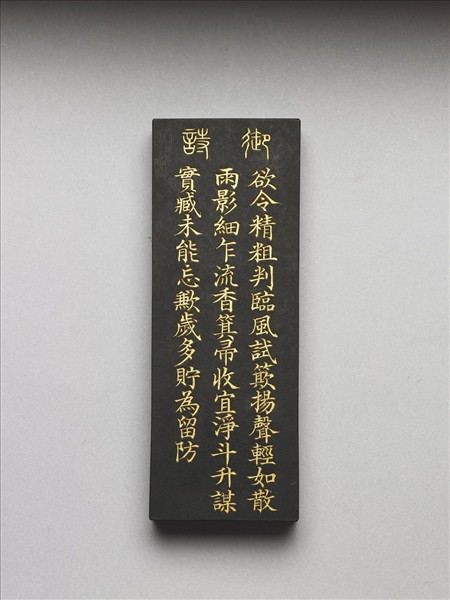 御詩
欲令精粗判臨風試簸揚聲輕如散
雨影細乍流香箕帚收宜淨斗升謀
實臧未能忘歉歲多貯為留防